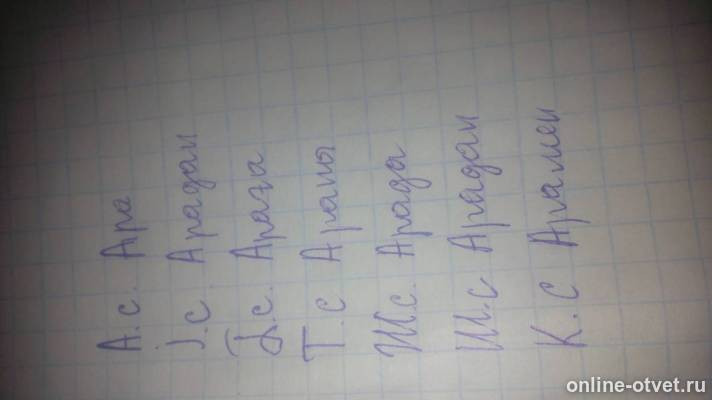 А.с. Ара
І.с. Арадан
Б.с. Араға
Т.с Араны
Ж.с. Арада
Ш.с Арадан
К.с Арамен
online-otvet.ru